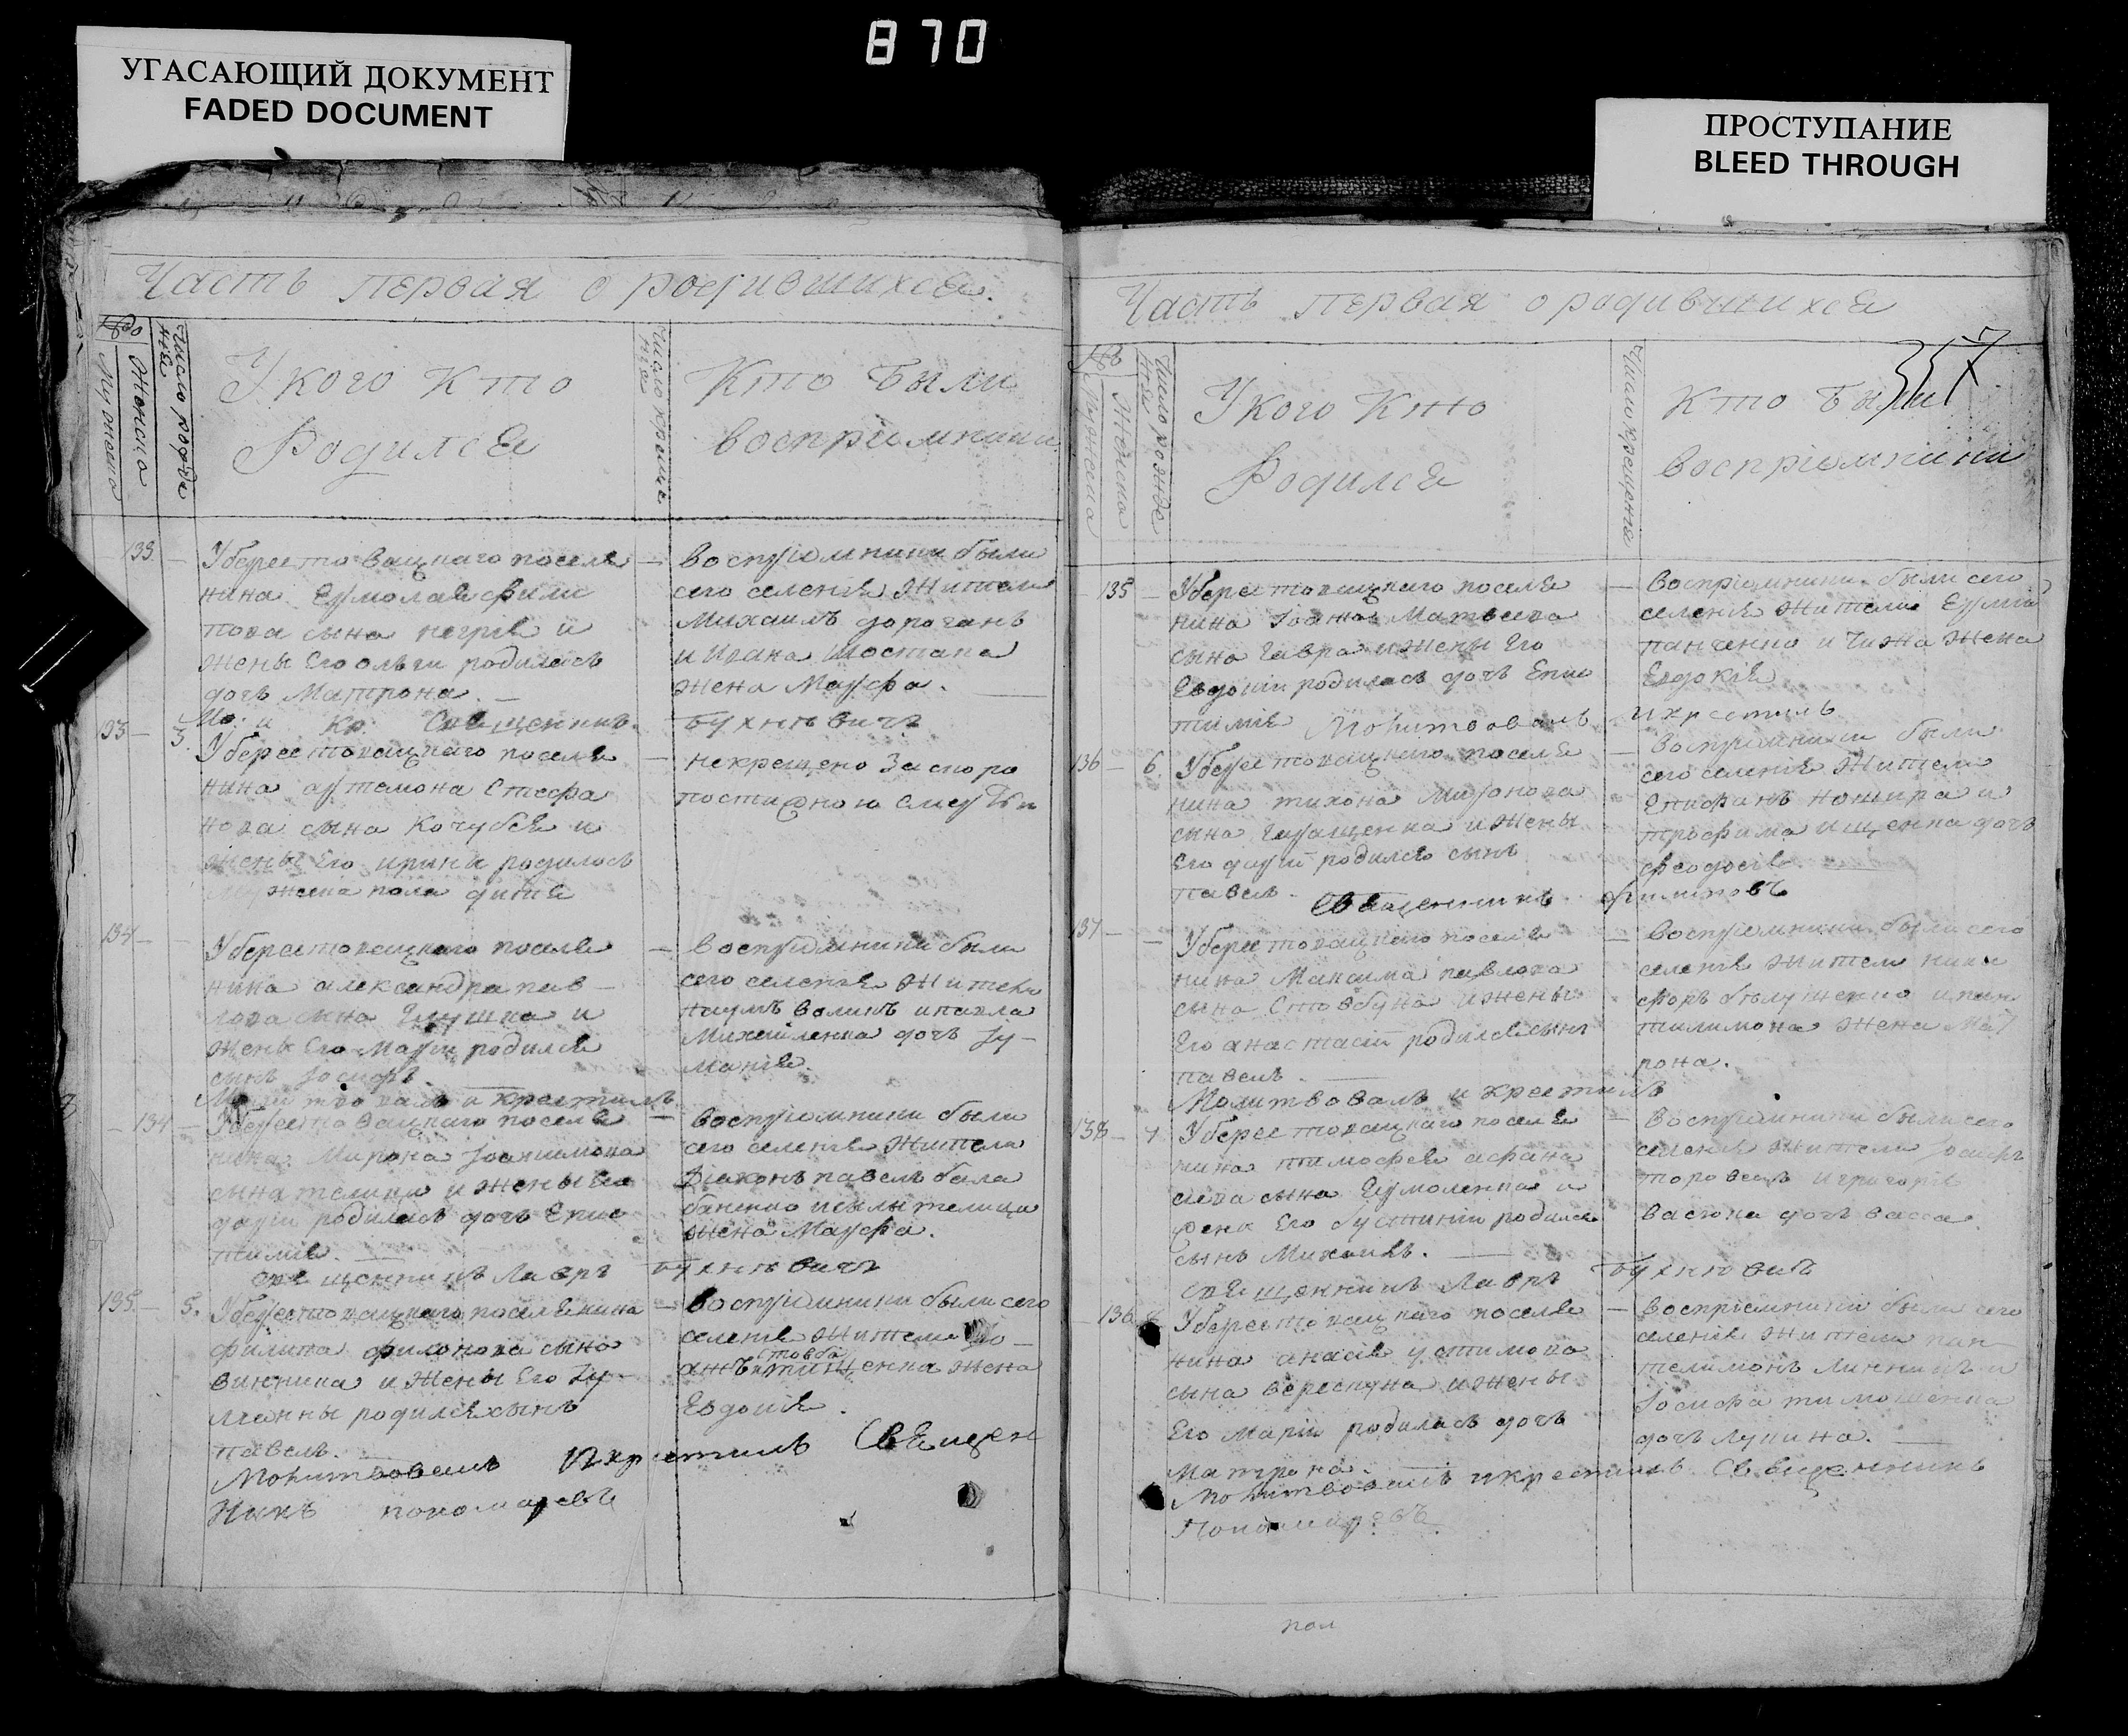 870
УГАСАЮЩИЙ ДОКУМЕНТ
FADED DOCUMENT
ПРОСТУПАНИЕ
BLEED THROUGH
Часть первая о родившихся.
Мужеска
Женска
Число рожде
нія
У кого кто
Родился
Число креще
нія
Кто были
воспріемники
133 — У берестовацкаго поселя
нина Ермолая фили
пова сына негрѣя и
жены Его ольги родилась
дочь Матрона. —
Мо: и кр: Священникъ
— воспріемники были
сего селенія Жители
Михаилъ дороганъ
и Ивана Шостака
жена Марфа.
Бухнѣвичъ
133 — 3. У берестовацкаго поселя
нина артемона Стефа
нова сына Кочубея и
жены Его ирины родилось
мужеска пола дитя
— некрещено За скоро
постижною смертью
134 — У берестовацкаго поселя
нина александра пав-
лова сына и
жены Его Маріи родился
сынъ Іосифъ.
Молитвовалъ и крестилъ
— воспріемники были
сего селенія Жители
наумъ воликъ и павла
Михайленка дочь Іу-
манія.
134 — У берестовацкаго поселя
нина Мирона Іоакимова
сына телици и жены Его
даріи родилась дочь Епис
тимія.
священникъ Лавръ Бухнѣвичъ
— воспріемники были
сего селенія Жители
Діаконъ павелъ бала
баненко и телици
жена Марфа.
135 — 5. У берестовацкаго поселянина
филипа филонова сына
винника и жены Его Іу-
ліанны родился сынъ
павелъ.
Молитвовалъ И крестилъ Священ
никъ пономаревъ
— воспріемники были сего
селенія жители
енка жена
Евдокія.
Часть первая о родившихся
Мужеска
Женска
Число рожде
нія
У кого Кто
Родился
Число крещенія
Кто были
воспріемники
357
135 — У берестовацкаго поселя
нина Іоанна Матвѣева
сына гавра и жены Его
Евдокіи родилась дочь Епис
тимія Молитвовалъ и крестилъ
— воспріемники были сего
селенія жители
панченко и Чижа жена
Евдокія
136 — 6. У берестовацкаго поселя
нина тихона Миронова
сына геращенка и жены
Его даріи родился сынъ
павелъ.
Священникъ филиповъ
— воспріемники были
сего селенія Жители
Епифанъ кошира и
трофима ищенка дочь
феодосія.
137 — У берестовацкаго поселя
нина Максима павлова
сына Стовбуна и жены
Его анастасіи родился сынъ
павелъ.
Молитвовалъ и крестилъ
— воспріемники были сего
селенія жители ники
форъ и пан
тилимона жена Мат
рона.
138 — 7 У берестовацкаго поселя
нина тимофея афана
сіева сына Ермоленка и
жены Его іустиніи родился
сынъ Михаилъ.
священникъ Лавръ Бухнѣвичъ
— воспріемники были сего
селенія жители Іосифъ
торовецъ и григорія
васюка дочь васса.
136 У берестовацкаго поселя
нина анасія устимова
сына вереснуна и жены
Его Маріи родилась дочь
Матрона.
Молитвовалъ и крестилъ Священникъ
Пономаревъ
— воспріемники были сего
селенія жители пан
телимонъ линникъ и
Іосифа тимошенка
дочь лукина. —
пом